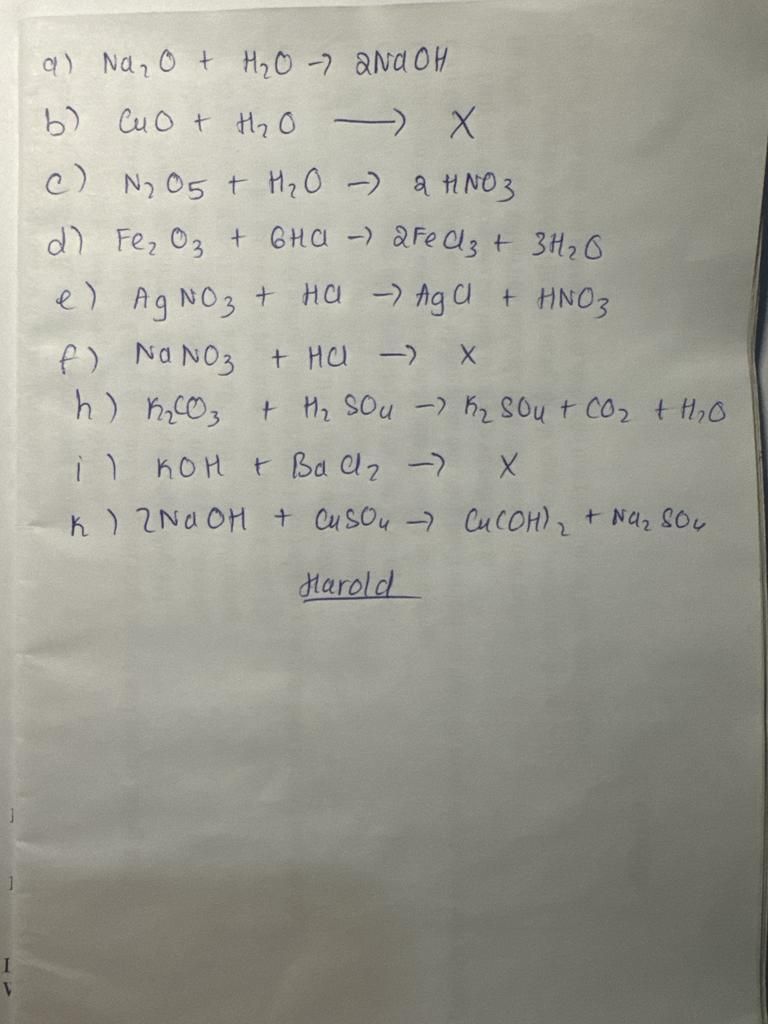 a) Na₂O + H₂O → 2NaOH
b) CuO + H₂O → X
c) N₂O5 + H₂O → 2HNO₃
d) Fe₂O₃ + 6HCl → 2FeCl₃ + 3H₂O
e) AgNO₃ + HCl → AgCl + HNO₃
f) NaNO₃ + HCl → X
h) K₂CO₃ + H₂SO₄ → K₂SO₄ + CO₂ + H₂O
i) KOH + BaCl₂ → X
k) 2NaOH + CuSO₄ → Cu(OH)₂ + Na₂SO₄
Harold